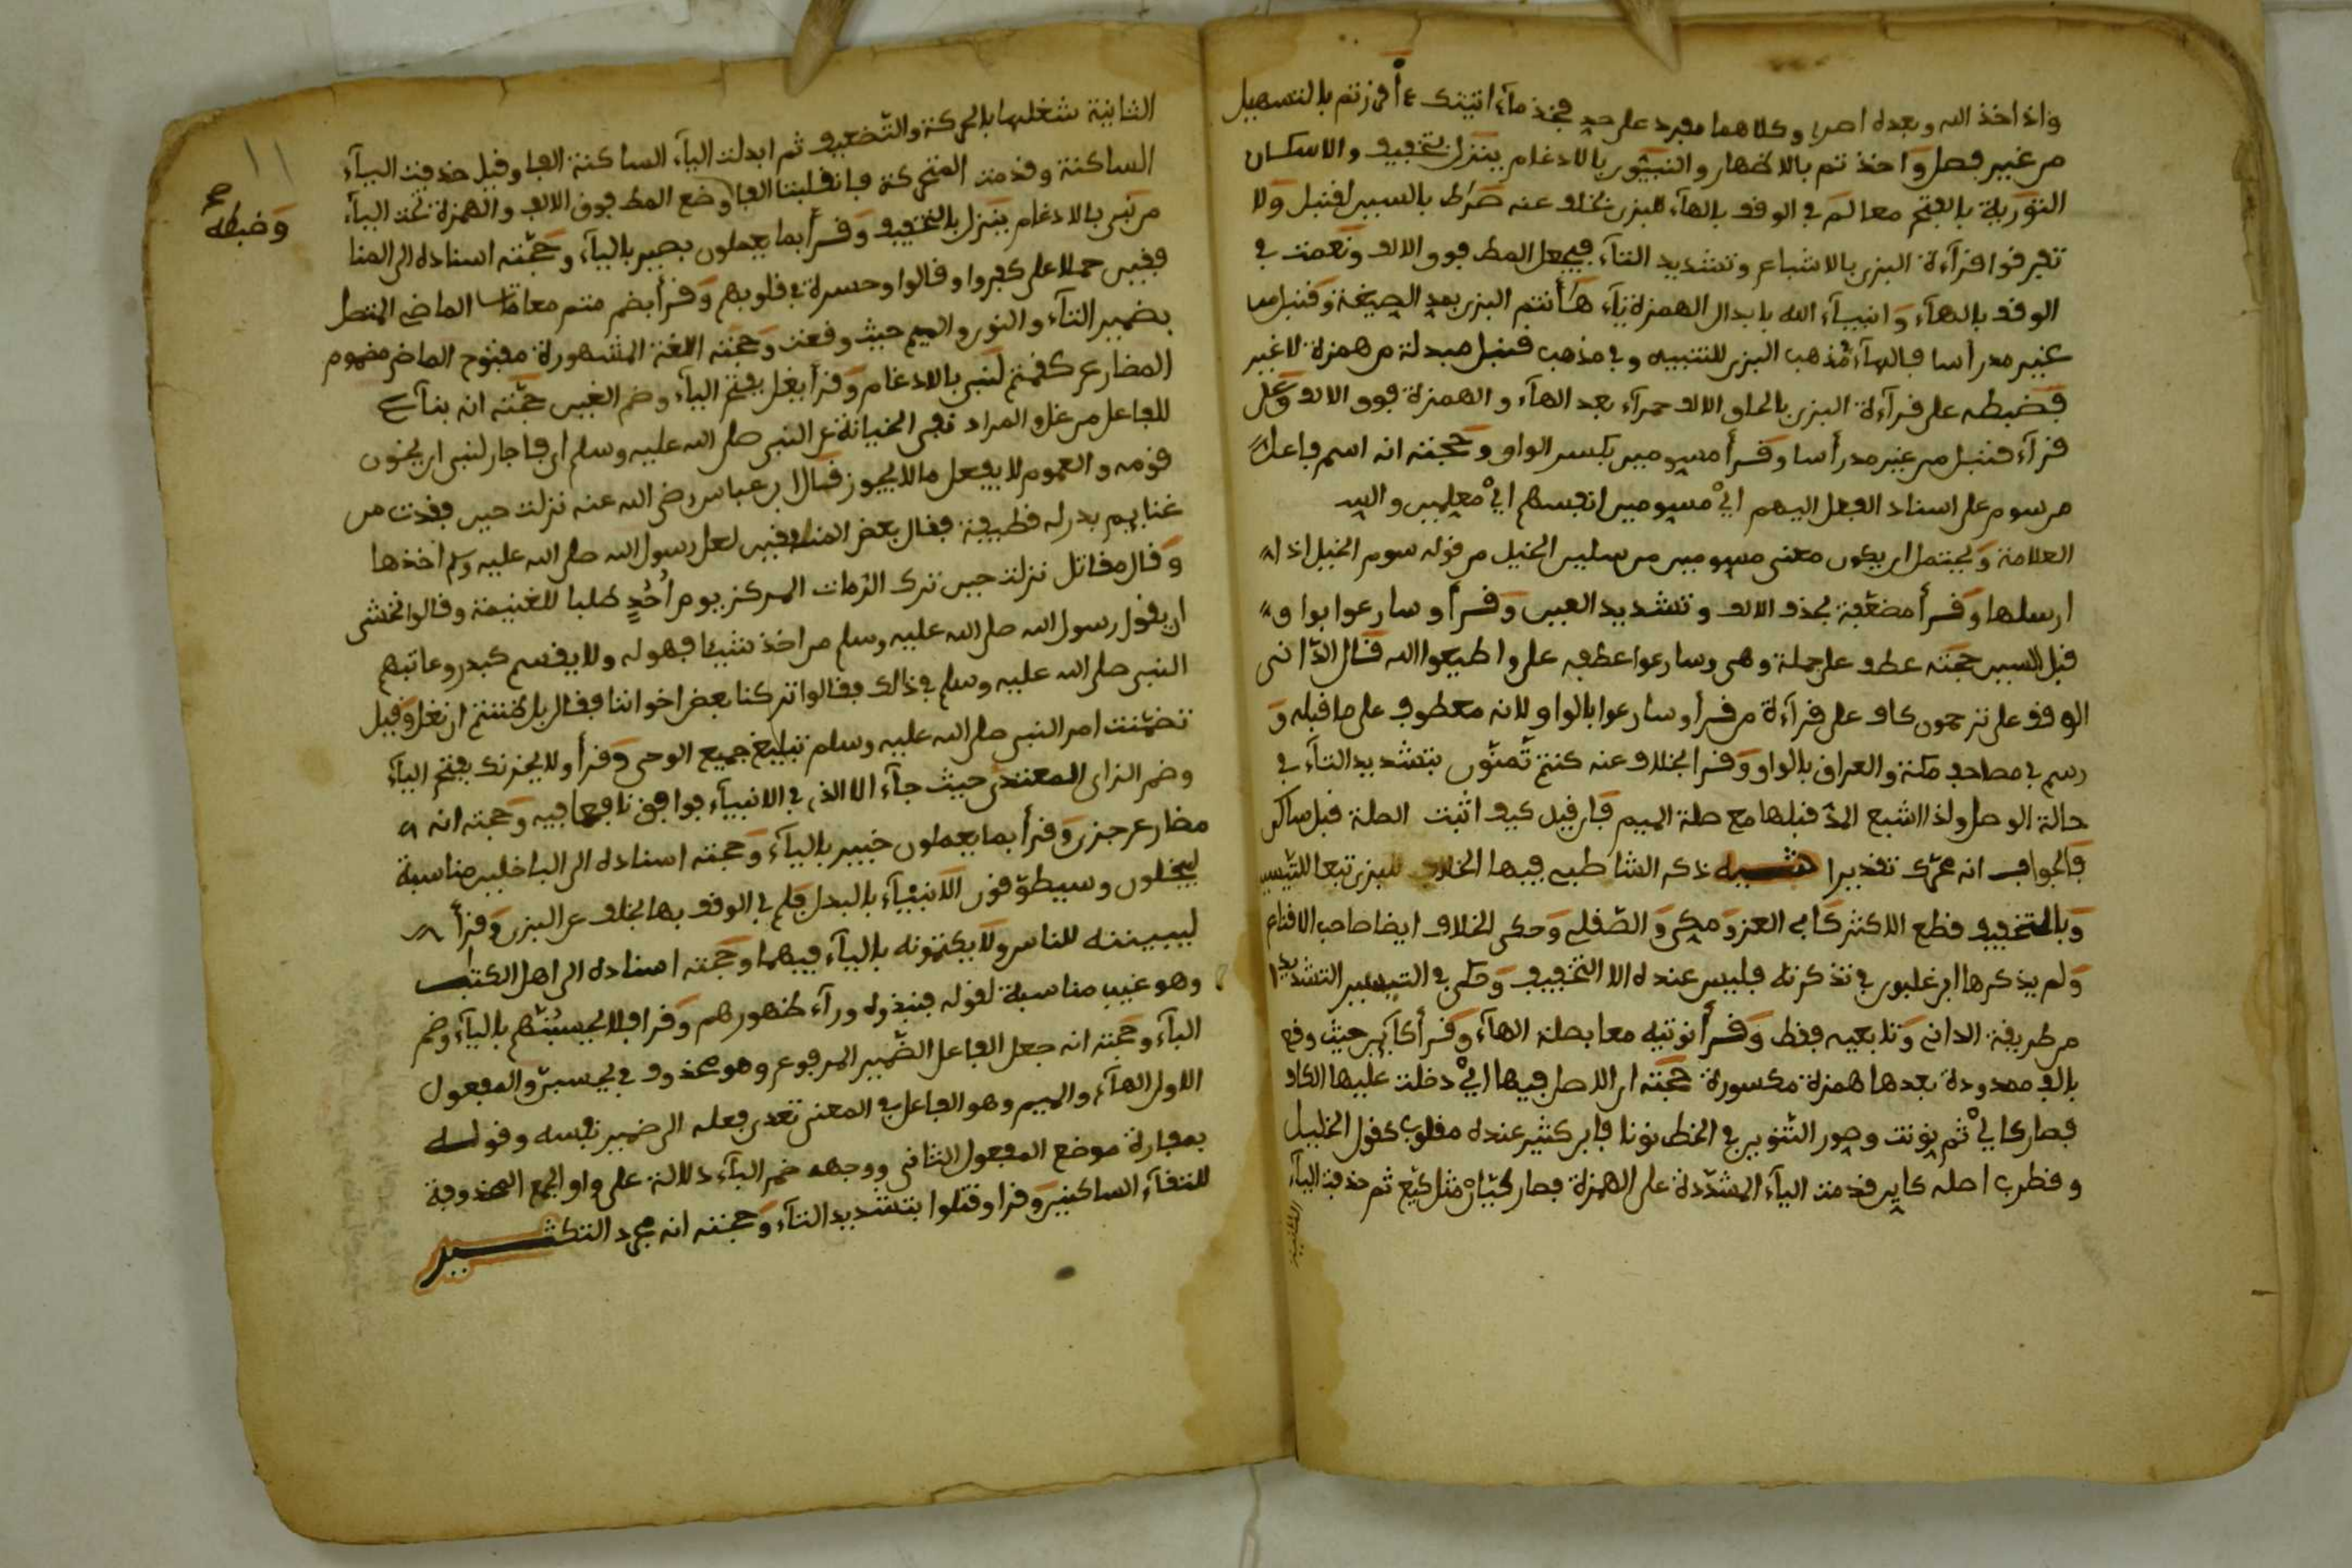 واذ اخذ الله وبعده اصرى وكلاهما مفرد على حد فخذ مآء اتيتك ءأقررتم بالتسهيل
من غير فصل وَاخذتم بالاظهار والنبيّون بالادغام ينزل بتخفيف والاسكان
التّوريٰة بالفتح معا لمَ في الوقف بالهآء للبزى بخلاف عنه صراط بالسين لقنبل وَلا
تفرقوا قرآءة البزى بالاشباع وتشديد التآء فيجعل المط فوق الالف ونعمت في
الوقف بالهآء وَانبيآء الله بابدال الهمزة يآء هَأنتم البزى بمد الصيغة وَقنبل من
غير مد رأسا فالهآء مذهب البزى للتنبيه وفي مذهب قنبل مبدلة من همزة لا غير
فضبطه على قرآءة البزى بالحاق الالف حمرآء بعد الهآء والهمزة فوق الالف وَعلى
قرآءة قنبل من غير مد رأسا وَقرأ مسومين بكسر الواو وَحجته انه اسم فاعل
مرسوم على اسناد الفعل اليهم ايْ مسومين انفسهم ايْ معلمين والسيمـ
العلامة وَيحتمل ان يكون معنى مسومين مرسلين الخيل من قوله سوم الخيل اذا
ارسلها وَقرأ مضعّفة بحذف الالف وتشديد العين وَقرأ وسارعوا بواو
قبل السين حجته عطف على جملة وهى وسارعوا عطفه على واطيعوا الله قال الدّانى
الوقف على ترحمون كاف على قرآءة من قرأ وسارعوا بالواو لانه معطوف على ما قبله وَ
رسم في مصاحف مكة والعراق بالواو وَقرا بخلاف عنه كنتم تّمنّون بتشديد التآء في
حالة الوصل ولذا اشبع المدّ قبلها مع صلة الميم فان قيل كيف اثبت الصلة قبل ساكن
فالجواب انه محرّك تقديرا تنبيه ذكر الشاطبى فيها الخلاف للبزى تبعا للتيسير
وَبالتخفيف قطع الاكثر كَابى العز وَمكى وَالصّقلى وَحكى الخلاف ايضا صاحب الاقناع
وَلم يذكرها ابن غلبون في تذكرته فليس عنده الا التخفيف وَحكى في التيسير التشديد
من طريقة الدانى وَتابعيه فقط وَقرأ نوته معا بصلة الهآء وَقرأ كآين حيث وقع
بالف ممدودة بعدها همزة مكسورة حجته ان الاصل فيها ايْ دخلت عليها الكاف
فصار كايْ ثم نونت وصور التنوين في الخط نونا فابن كثير عنده مقلوب كقول الخليل
وقطرب اصله كاين قدمت اليآء المشدّدة على الهمزة فصار كيّان مثل كيّع ثم حذفت اليآء
الثانية
الثانية لثقلها بالحركة والتّضعيف ثم ابدلت اليآء الساكنة الفا وقيل حذفت اليآء
الساكنة وقدمت المتحركة فانقلبتا الفا وضع المط فوق الالف والهمزة تحت اليآء
وَضبطه صح
من نبى بالادغام ينزل بالتخفيف وَقرأ بما يعملون بصير باليآء وحجّته اسناده الى المنا
فقين حملا على كفروا وقالوا وحسرة في قلوبهم وَقرأ بضم متم معا قاس الماضى المتصل
بضمير التآء والنون والميم حيث وقعت وَحجته اللغة المشهورة مفتوح الماضى مضموم
المضارع كقمتم لنبى بالادغام وَقرأ يغل بفتح اليآء وضم الغين حجّته انه بنآء
للفاعل من غل والمراد نفى الخيانة عن النبى صلى الله عليه وسلم اى فما جاز لنبى ان يخون
قومه والعموم لا يفعل ما لا يجوز قال ابن عباس رضى الله عنه نزلت حين فقدت من
غنايم بدر له قطيفة فقال بعض المنافقين لعل رسول الله صلى الله عليه وسلم اخذها
وَقال مقاتل نزلت حين ترك الرّمات المركز يوم أُحُدٍ طلبا للغنيمة وقالوا نخشى
ان يقول رسول الله صلى الله عليه وسلم من اخذ شيئا فهو له ولا يقسم كبدر وعاتبهم
النبى صلى الله عليه وسلم في ذالك فقالوا تركنا بعض اخواننا فقال بل ظننتم ان نغل وَقيل
تضمّنت امر النبى صلى الله عليه وسلم تبليغ جميع الوحى وَقرأ ولا يحزنك بفتح اليآء
وضم الزاى المعتدى حيث جآء الا الذى في الانبيآء فوافق نافعا فيه وَحجته انه
مضارع حزن وَقرأ بما يعملون خبير باليآء وَحجته اسناده الى الباخلين مناسبة
ليبخلون وسيطوّقون الانبيآء بالبدل فلم في الوقف بها بخلاف عن البزى وَقرأ
ليبيننه للناس ولا يكتمونه باليآء فيهما وحجّته اسناده الى اهل الكتب
وهو غيب مناسبة لقوله فنبذوه ورآء ظهورهم وَقرا فلا يحسبُنّهم باليآء وضم
البآء وحجّته انه جعل الفاعل الضّمير المرفوع وهو محذوف في يحسبنّ والمفعول
الاول الهآء والميم وهو الفاعل في المعنى تعدى فعله الى ضمير نفسه وقوله
بمفازة موضع المفعول الثانى ووجهه ضم البآء دلالة على واو الجمع المحذوفة
للتقآء الساكنين وَقرا وقتلوا بتشديد التآء وَحجته انه مجرد التكثير
١١